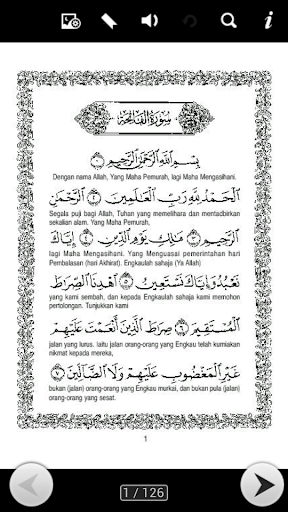 سُورَةُ الْفَاتِحَةِ
بِسْمِ اللَّهِ الرَّحْمَٰنِ الرَّحِيمِ ١
Dengan nama Allah, Yang Maha Pemurah, lagi Maha Mengasihani.
الْحَمْدُ لِلَّهِ رَبِّ الْعَالَمِينَ ٢ الرَّحْمَٰنِ
Segala puji bagi Allah, Tuhan yang memelihara dan mentadbirkan
sekalian alam. Yang Maha Pemurah,
الرَّحِيمِ ٣ مَالِكِ يَوْمِ الدِّينِ ٤ إِيَّاكَ
lagi Maha Mengasihani. Yang Menguasai pemerintahan hari
Pembalasan (hari Akhirat). Engkaulah sahaja (Ya Allah)
نَعْبُدُ وَإِيَّاكَ نَسْتَعِينُ ٥ اهْدِنَا الصِّرَاطَ
yang kami sembah, dan kepada Engkaulah sahaja kami memohon
pertolongan. Tunjukkan kami
الْمُسْتَقِيمَ ٦ صِرَاطَ الَّذِينَ أَنْعَمْتَ عَلَيْهِمْ
jalan yang lurus. Iaitu jalan orang-orang yang Engkau telah kurniakan
nikmat kepada mereka,
غَيْرِ الْمَغْضُوبِ عَلَيْهِمْ وَلَا الضَّالِّينَ ٧
bukan (jalan) orang-orang yang Engkau murkai, dan bukan pula (jalan)
orang-orang yang sesat.
1
1 / 126